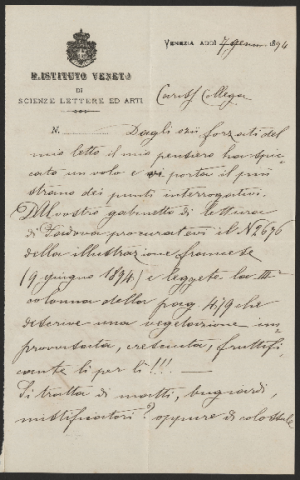 R. ISTITUTO VENETO
DI
SCIENZE LETTERE ED ARTI
VENEZIA ADDÌ 7 1894
Collega
N. Dagli ozii forzati del
mio letto il mio pensiero ha spic-
cato un volo e portai il più
strano dei punti interrogativi.
Dal vostro gabinetto di lettura
di Padova procuratevi il N 2676
della illustrazione francese
(9 giugno 1894) e leggete la III
colonna della pag 479 che
descrive una vegetazione im-
provvisata, cresciuta, fruttifi-
cante lì per lì!!!
Si tratta di matti, bugiardi,
mistificatori? oppure di